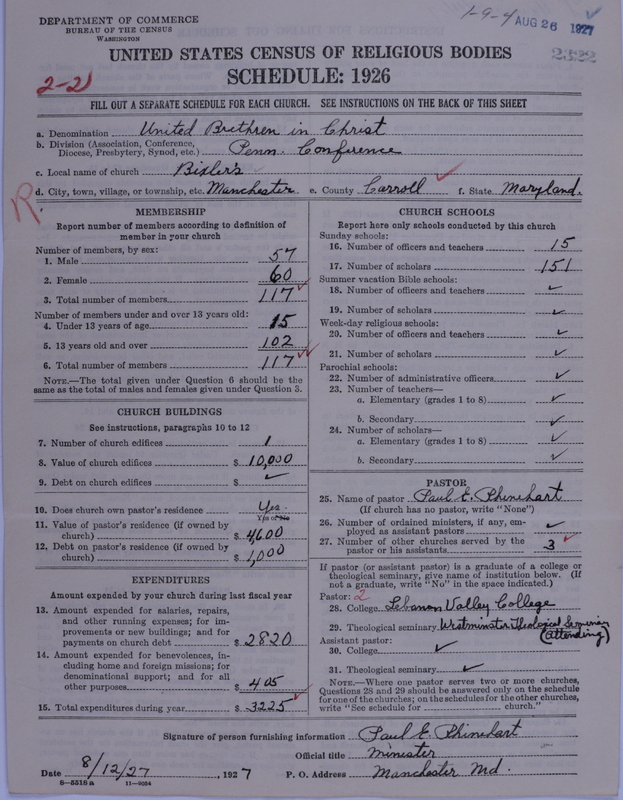 DEPARTMENT OF COMMERCE
BUREAU OF THE CENSUS
WASHINGTON
1-9-4 AUG 26 1927
2322
UNITED STATES CENSUS OF RELIGIOUS BODIES
SCHEDULE: 1926
2-21
FILL OUT A SEPARATE SCHEDULE FOR EACH CHURCH. SEE INSTRUCTIONS ON THE BACK OF THIS SHEET
a. Denomination United Brethren in Christ
b. Division (Association, Conference, Diocese, Presbytery, Synod, etc.) Penn. Conference
c. Local name of church Bixler's
d. City, town, village, or township, etc. Manchester e. County Carroll ✓ f. State Maryland.
R.
MEMBERSHIP
Report number of members according to definition of
member in your church
Number of members, by sex:
1. Male 57
2. Female 60
3. Total number of members 117 ✓
Number of members under and over 13 years old:
4. Under 13 years of age 15
5. 13 years old and over 102
6. Total number of members 117 ✓✓
NOTE.—The total given under Question 6 should be the
same as the total of males and females given under Question 3.
CHURCH BUILDINGS
See instructions, paragraphs 10 to 12
7. Number of church edifices 1
8. Value of church edifices $ 10,000
9. Debt on church edifices $ ✓
10. Does church own pastor's residence Yes
Yes or No
11. Value of pastor's residence (if owned by
church) $ 4,600
12. Debt on pastor's residence (if owned by
church) $ 1,000
EXPENDITURES
Amount expended by your church during last fiscal year
13. Amount expended for salaries, repairs,
and other running expenses; for im-
provements or new buildings; and for
payments on church debt $ 2820
14. Amount expended for benevolences, in-
cluding home and foreign missions; for
denominational support; and for all
other purposes $ 405
15. Total expenditures during year $ 3225 ✓
CHURCH SCHOOLS
Report here only schools conducted by this church
Sunday schools:
16. Number of officers and teachers 15
17. Number of scholars 151
Summer vacation Bible schools:
18. Number of officers and teachers ✓
19. Number of scholars ✓
Week-day religious schools:
20. Number of officers and teachers ✓
21. Number of scholars ✓
Parochial schools:
22. Number of administrative officers ✓
23. Number of teachers—
a. Elementary (grades 1 to 8) ✓
b. Secondary ✓
24. Number of scholars—
a. Elementary (grades 1 to 8) ✓
b. Secondary ✓
PASTOR
25. Name of pastor Paul E. Rhinehart
(If church has no pastor, write "None")
26. Number of ordained ministers, if any, em-
ployed as assistant pastors ✓
27. Number of other churches served by the
pastor or his assistants 3 ✓
If pastor (or assistant pastor) is a graduate of a college or
theological seminary, give name of institution below. (If
not a graduate, write "No" in the space indicated.)
Pastor: 2
28. College Lebanon Valley College
29. Theological seminary Westminster Theological Seminary
(attending)
Assistant pastor:
30. College ✓
31. Theological seminary ✓
NOTE.—Where one pastor serves two or more churches,
Questions 28 and 29 should be answered only on the schedule
for one of the churches; on the schedules for the other churches,
write "See schedule for church."
Signature of person furnishing information Paul E. Rhinehart
Official title Minister
Date 8/12/27, 1927 P. O. Address Manchester Md.
8-5516a 11-9034